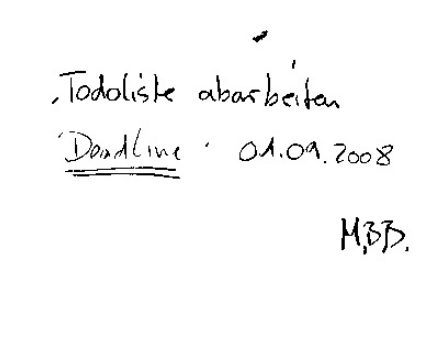 Todoliste abarbeiten
Deadline: 01.09.2008
M.B.B.